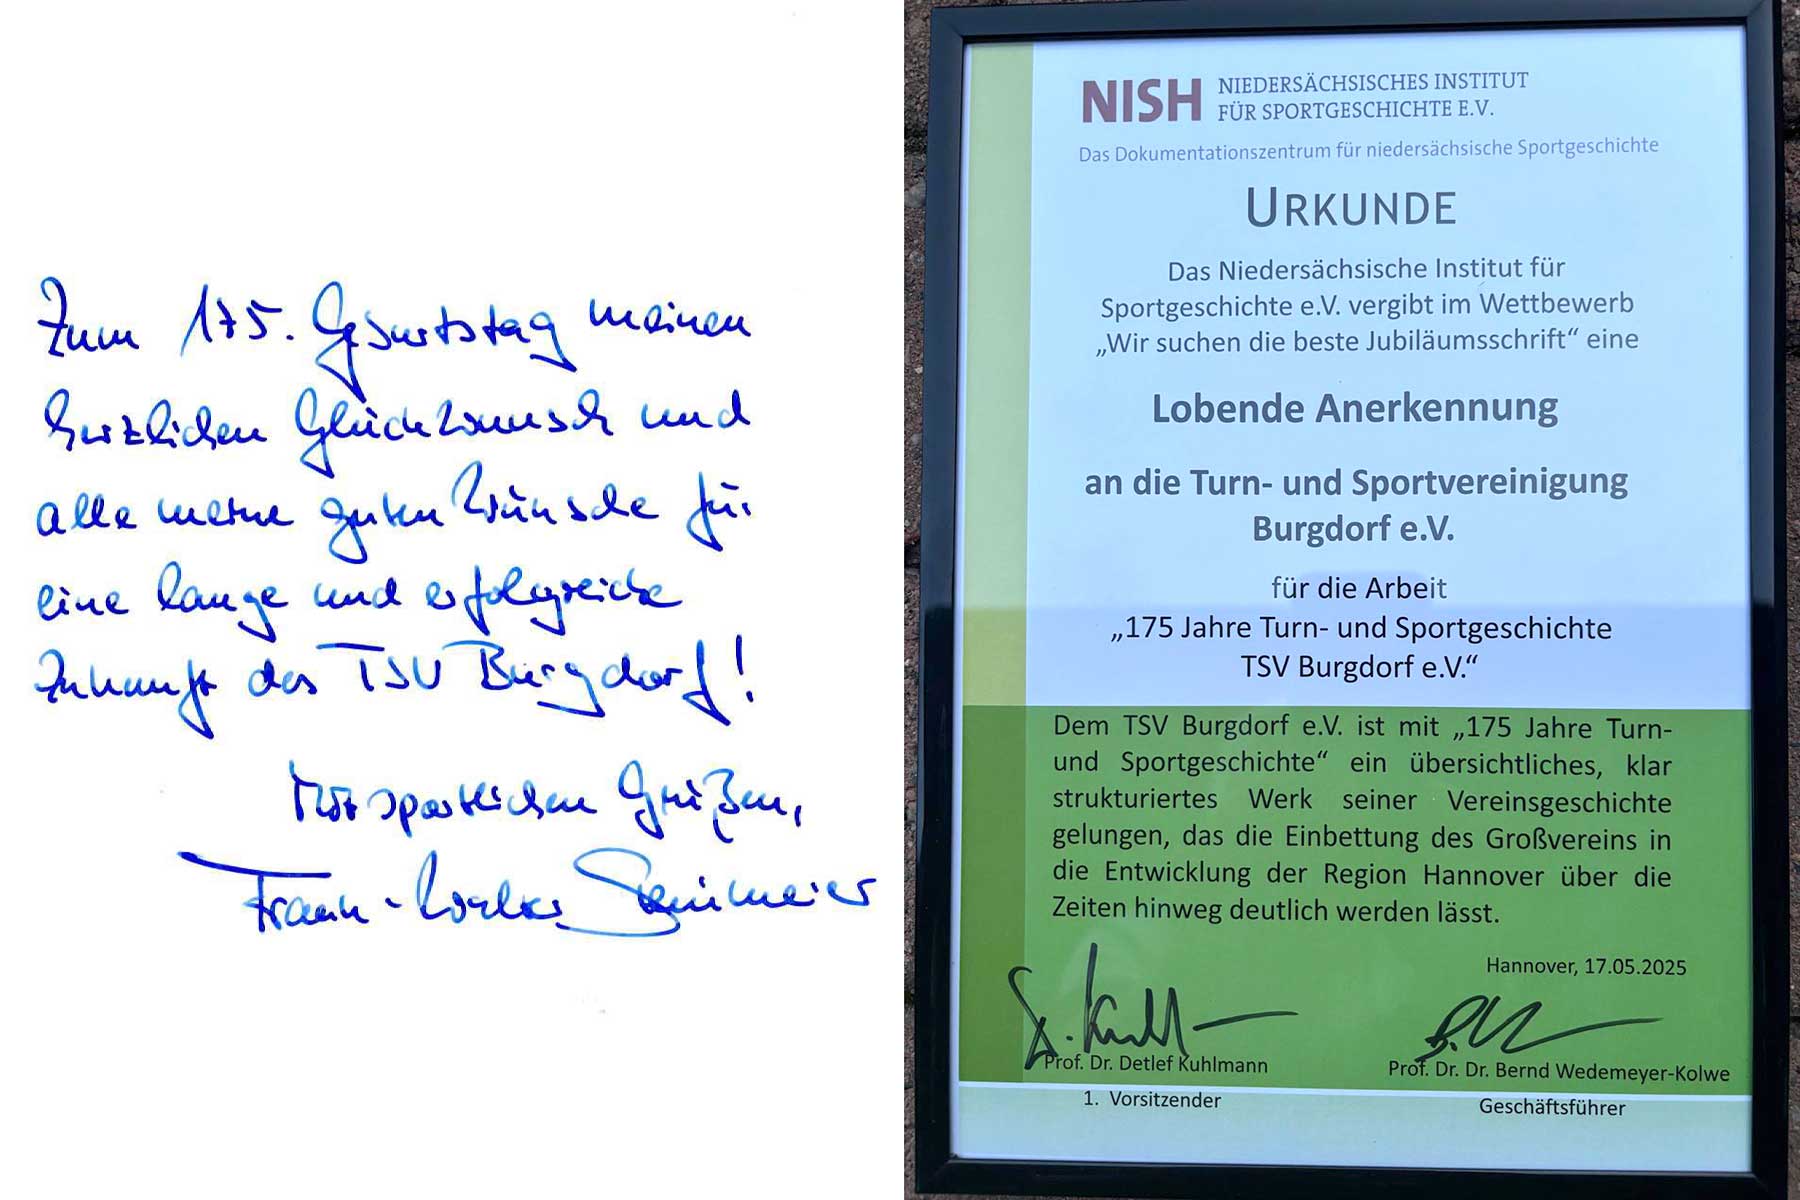 Zum 175. Geburtstag meinen
herzlichen Glückwunsch und
alle meine guten Wünsche für
eine lange und erfolgreiche
Zukunft des TSV Burgdorf!
Mit sportlichen Grüßen,
Frank-Walter Steinmeier
NISH NIEDERSÄCHSISCHES INSTITUT
FÜR SPORTGESCHICHTE E.V.
Das Dokumentationszentrum für niedersächsische Sportgeschichte
URKUNDE
Das Niedersächsische Institut für
Sportgeschichte e.V. vergibt im Wettbewerb
„Wir suchen die beste Jubiläumsschrift“ eine
Lobende Anerkennung
an die Turn- und Sportvereinigung
Burgdorf e.V.
für die Arbeit
„175 Jahre Turn- und Sportgeschichte
TSV Burgdorf e.V.“
Dem TSV Burgdorf e.V. ist mit „175 Jahre Turn-
und Sportgeschichte“ ein übersichtliches, klar
strukturiertes Werk seiner Vereinsgeschichte
gelungen, das die Einbettung des Großvereins in
die Entwicklung der Region Hannover über die
Zeiten hinweg deutlich werden lässt.
Hannover, 17.05.2025
Prof. Dr. Detlef Kuhlmann
1. Vorsitzender
Prof. Dr. Dr. Bernd Wedemeyer-Kolwe
Geschäftsführer